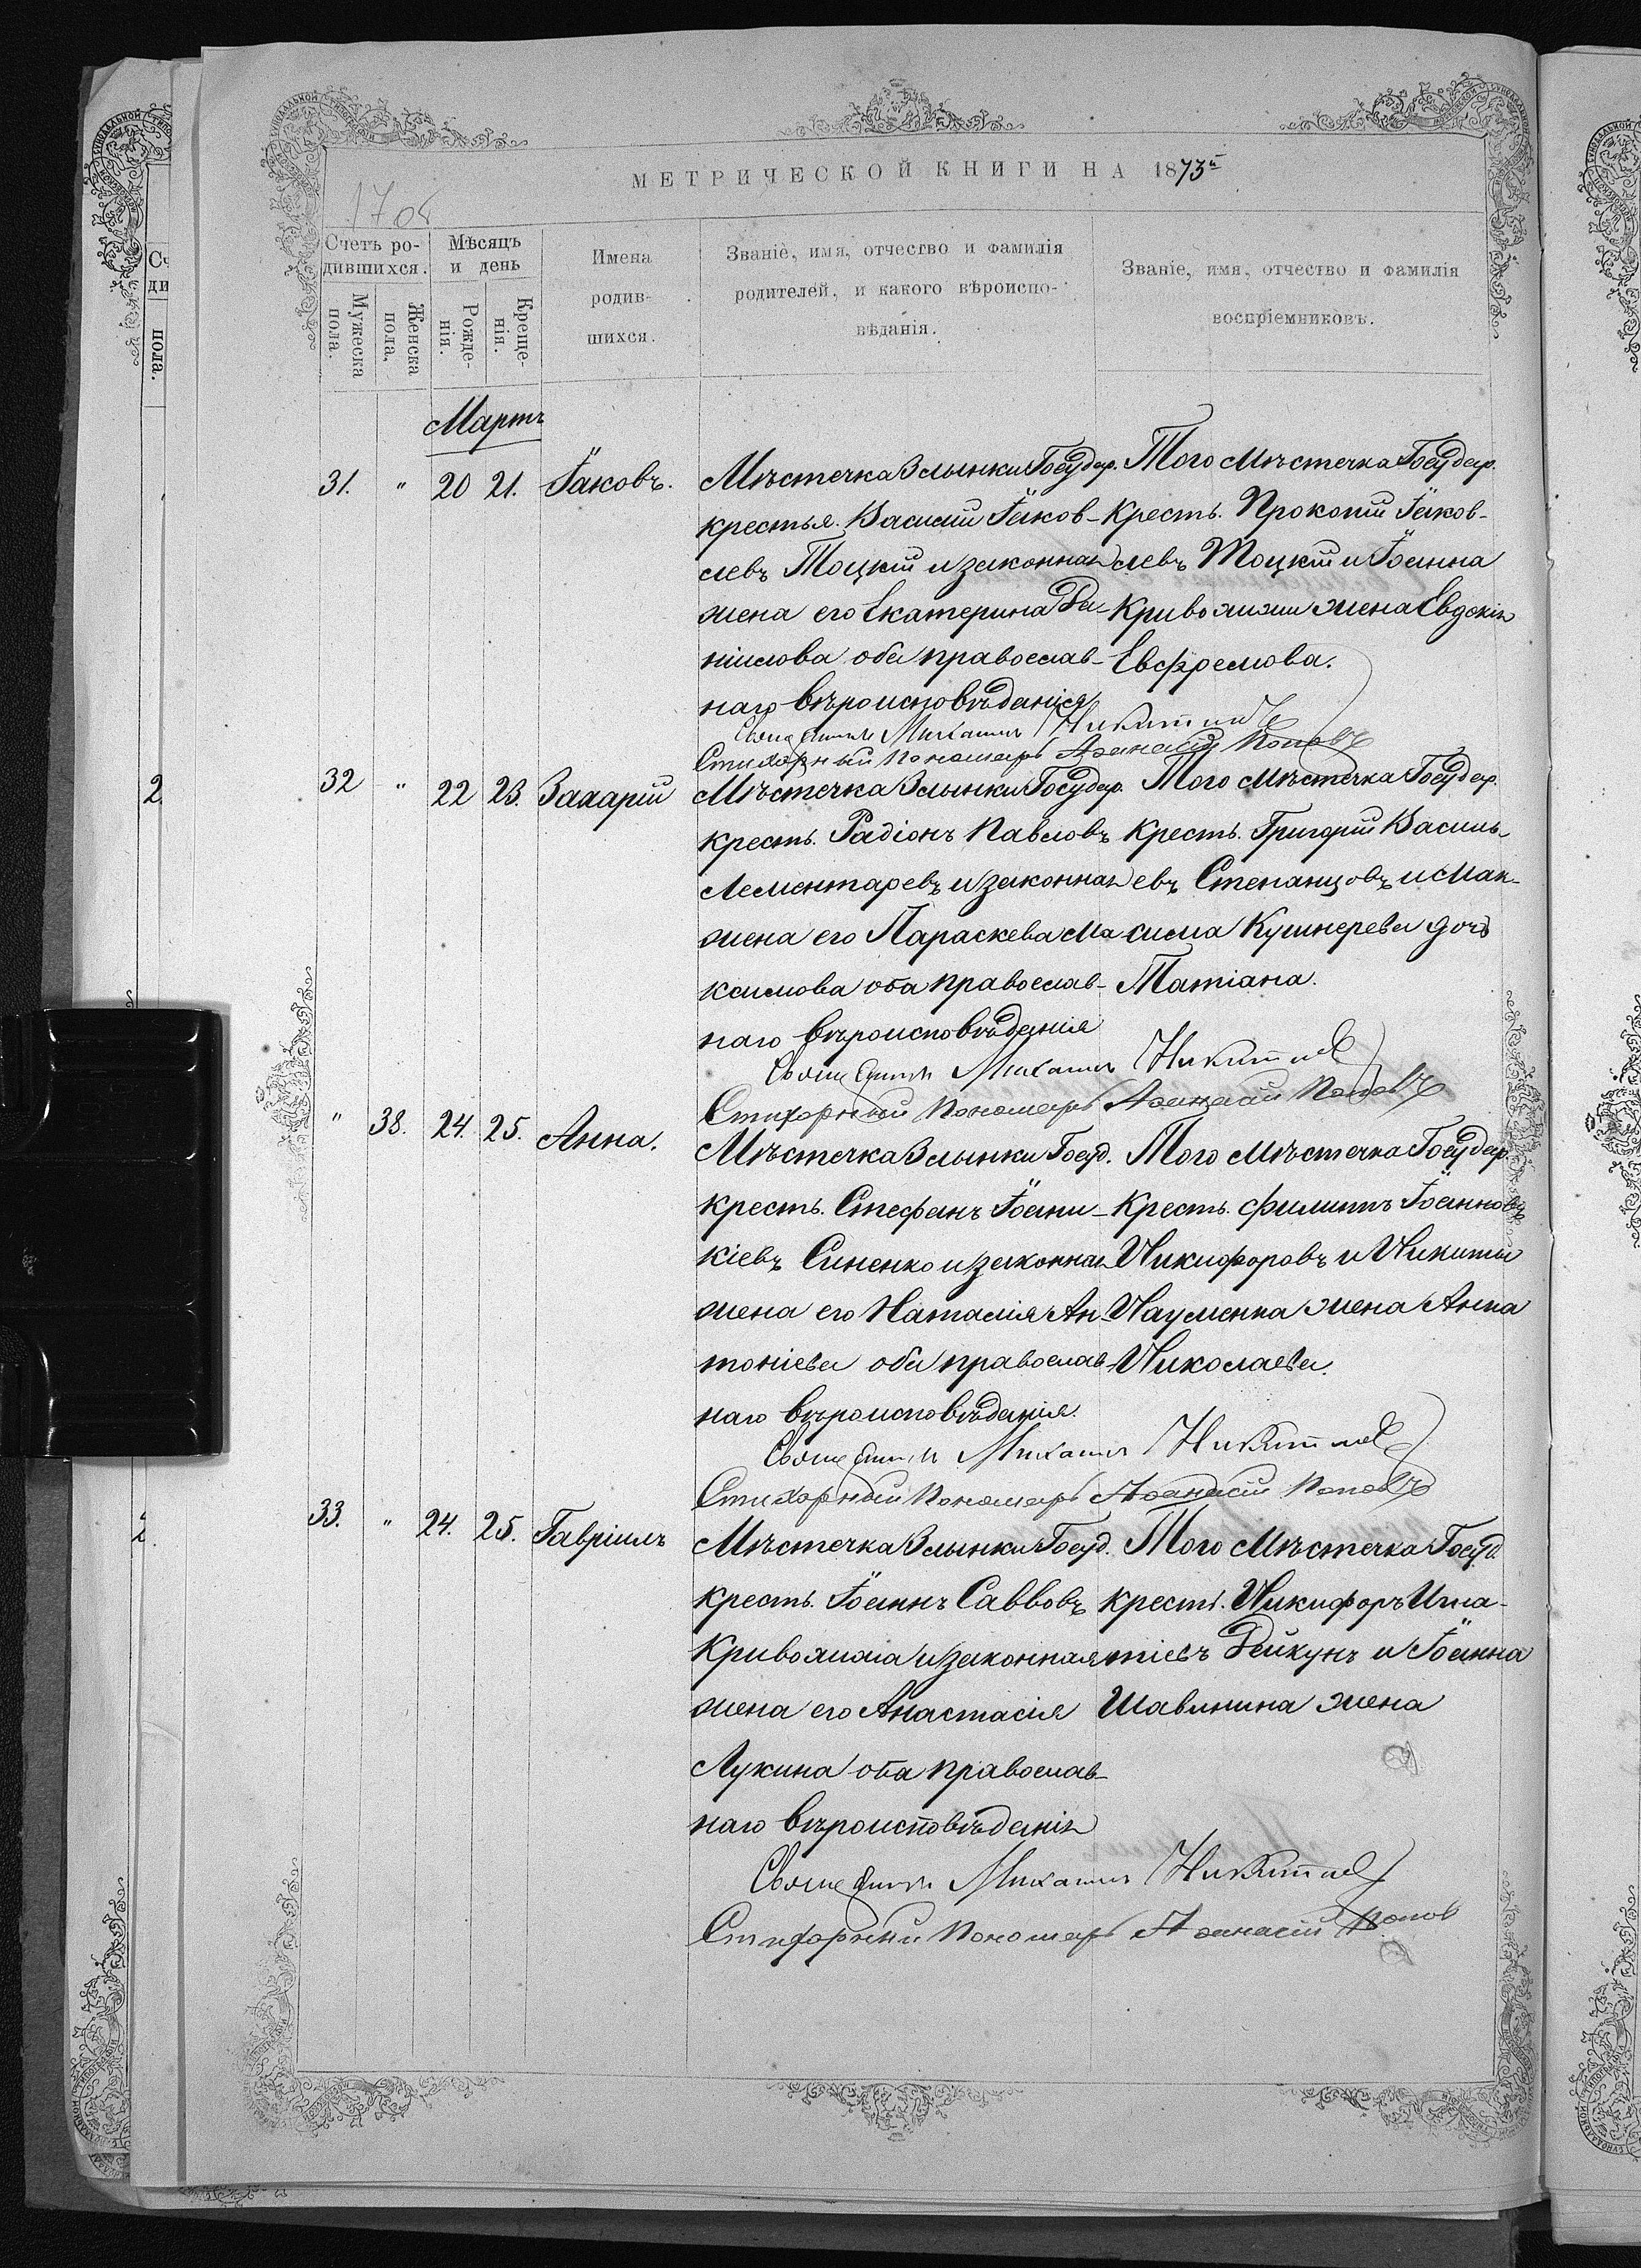 МЕТРИЧЕСКОЙ КНИГИ НА 1873й
Счетъ ро-
дившихся.
Мужеска
пола.
Женска
пола.
Мѣсяцъ
и день
Рожде-
нія.
Креще-
нія.
Имена
родив-
шихся.
Званіе, имя, отчество и фамилія
родителей, и какого вѣроиспо-
вѣданія.
Званіе, имя, отчество и фамилія
воспріемниковъ.
Мартъ
31. " 20 21. Іаковъ.
Мѣстечка Злынки Государ.
крестья. Василій Іаков-
левъ Тоцкій и законная
жена его Екатерина Да-
ніилова оба православ-
наго вѣроисповѣданія
Того мѣстечка Государ.
Кресть. Прокопій Іаков-
левъ Тоцкій и Іоанна
Криволижи жена Евдокія
Евфремова.
Священникъ Михаилъ Никитинъ
Стихарный Пономарь Аѳанасій Поповъ
32 " 22 23. Захарій
Мѣстечка Злынки Государ.
кресть. Радіонъ Павловъ
Лементаревъ и законная
жена его Параскева Ма
ксимова оба православ-
наго вѣроисповѣданія
Того мѣстечка Государ.
Кресть. Григорій Василь-
евъ Степанцовъ и Мак-
сима Кушнерева дочь
Татіана.
Священникъ Михаилъ Никитинъ
Стихарный Пономарь Аѳанасій Поповъ
" 38. 24. 25. Анна.
Мѣстечка Злынки Госуд.
кресть. Стефанъ Іоанн-
кіевъ Синенко и законная
жена его Наталія Ан-
тоніева оба православ-
наго вѣроисповѣданія.
Того мѣстечка Государ.
Кресть. Филиппъ Іоанновъ
Никифоровъ и Никиты
Науменка жена Анна
Николаева.
Священникъ Михаилъ Никитинъ
Стихарный Пономарь Аѳанасій Поповъ
33. " 24. 25. Гавріилъ
Мѣстечка Злынки Госуд.
кресть. Іоаннъ Саввовъ
Криволижа и законная
жена его Анастасія
Лукина оба православ-
наго вѣроисповѣданія
Того мѣстечка Госуд.
кресть. Никифоръ Игна-
тіевъ Дейкунъ и Іоанна
Шавлнина жена
Священникъ Михаилъ Никитинъ
Стихарный Пономарь Аѳанасій Попов